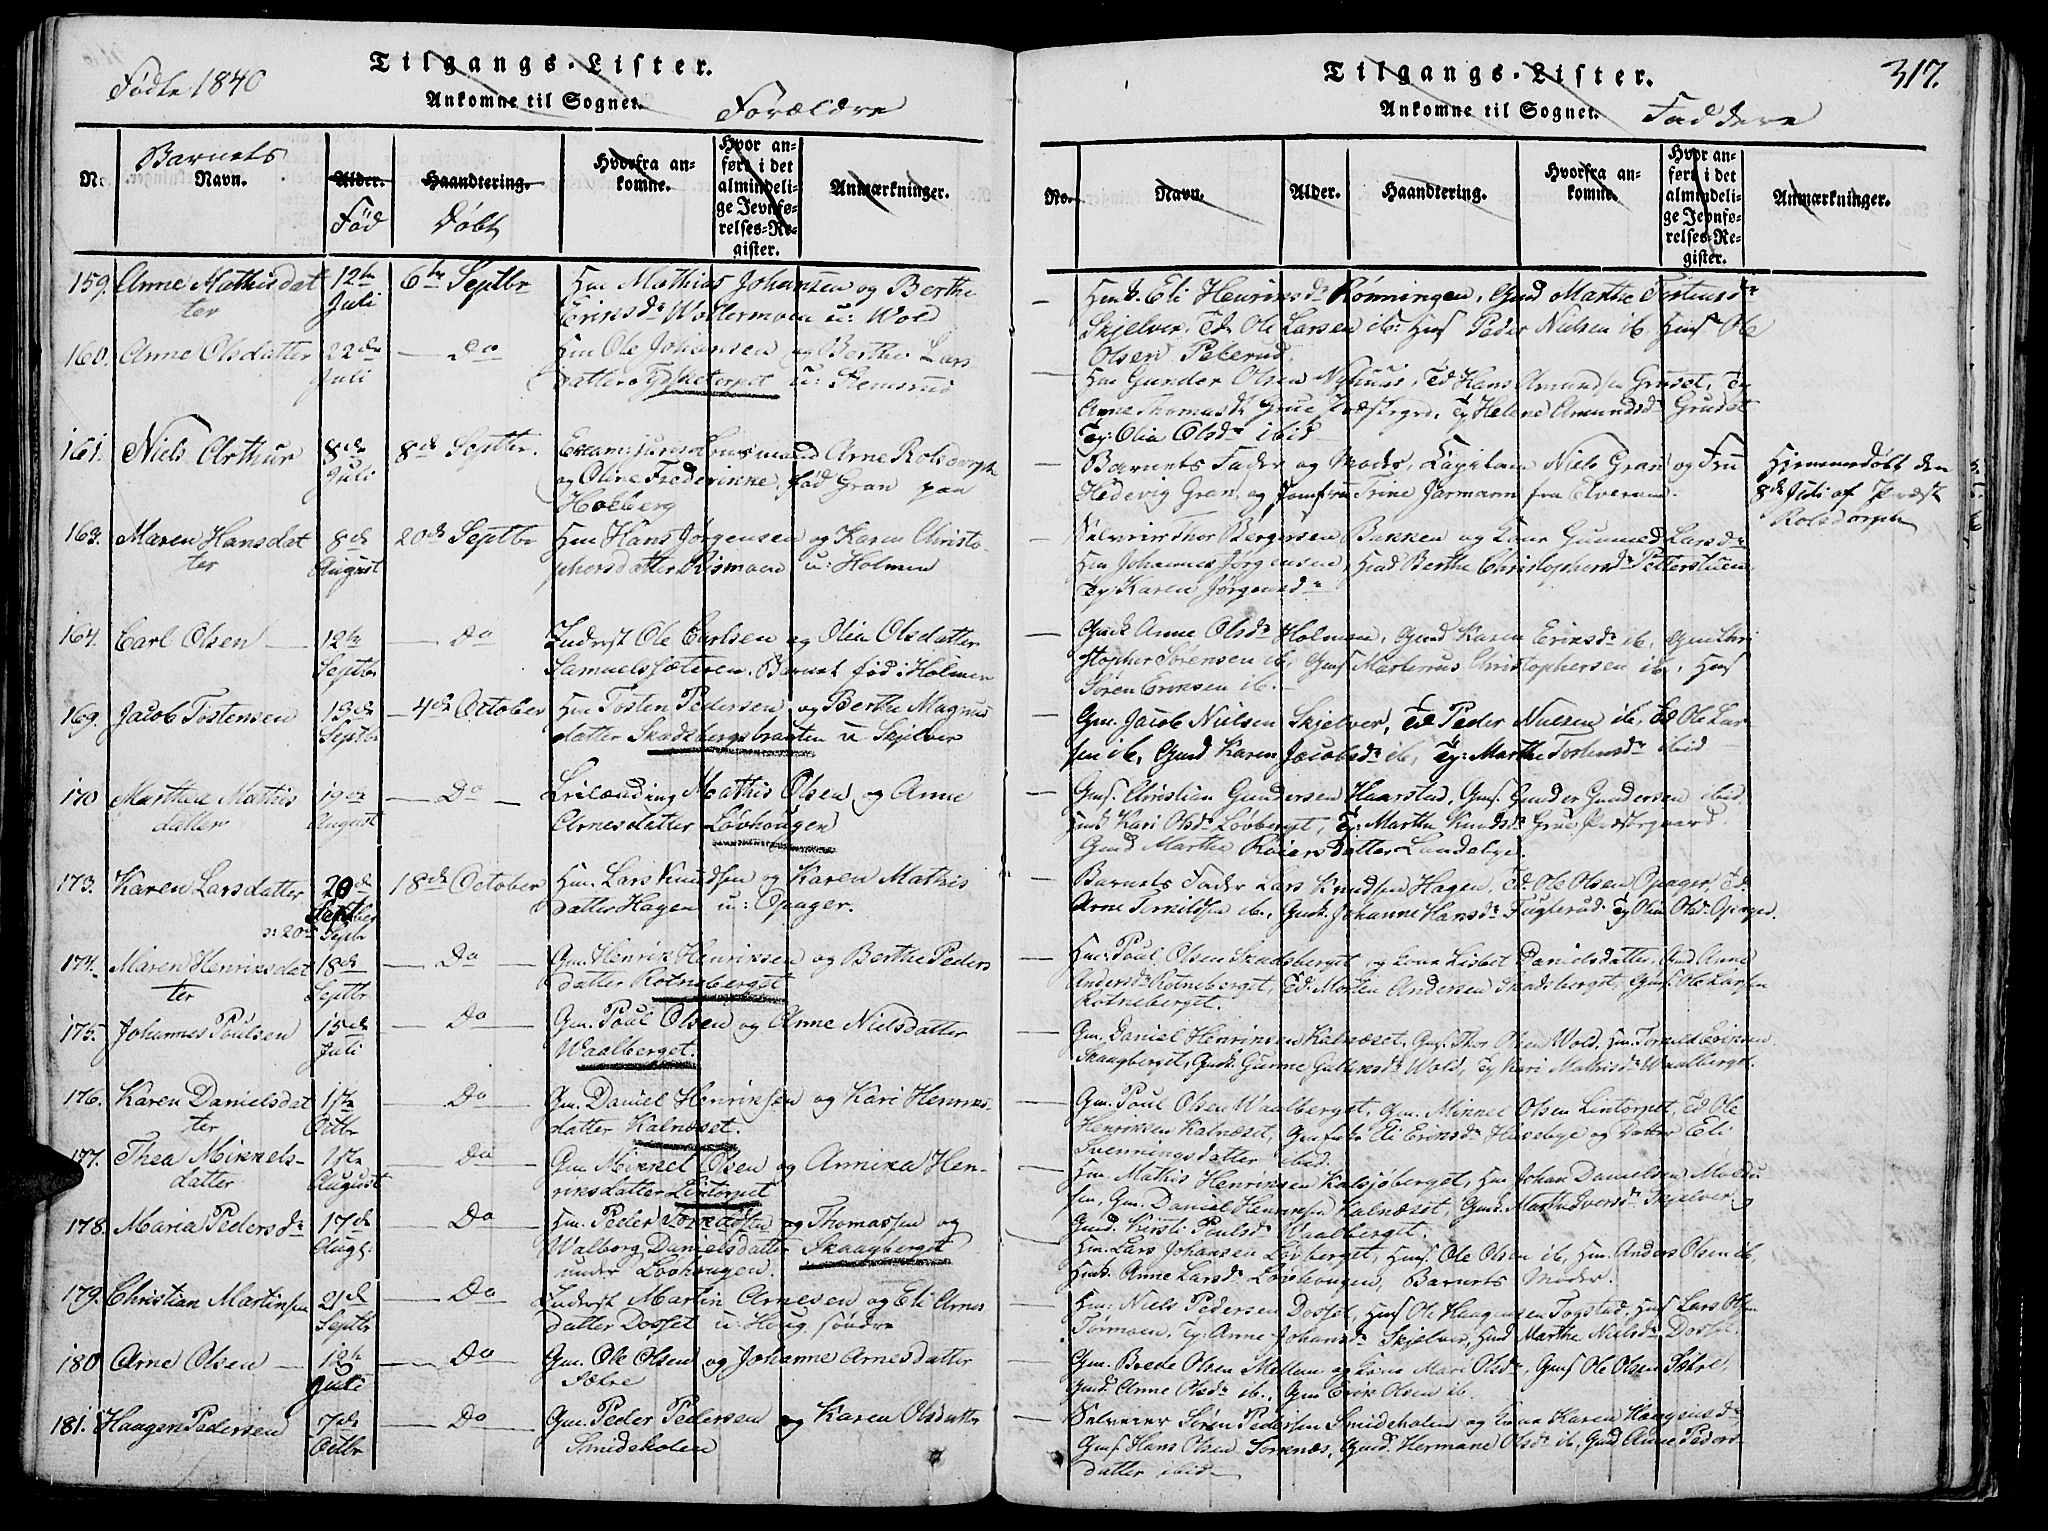 Tilgangs-Lister.
Fødte 1840
Ankomne til Sognet.
Forældre
No.
Barnets
Navn.
Alder.
Fød
Haandtering.
Døbt
Hvorfra an-
komne.
Hvor an-
ført i det
almindeli-
ge Jevnfø-
relses-Re-
gister.
Anmærkninger.
159. Anne Mathisdat
ter
12te
Juli
6te Septbr
Hm Mathias Johansen og Berthe
Eriksdr Woldermoen u: Wold
160. Anne Olsdatter
22de
Juli
Do
Hm Ole Johansen og Berthe Lars
datter Tydsketorpet u: Stemsrud
161. Niels Arthur
8de
Juli
8de Septbr.
Exam: juris Lensmand Arne Rolsdorph
og Oline Frederikke, fød Gran paa
Holberg
163. Maren Hansdat
ter
8de
August
20de Septbr
Hm Hans Jørgensen og Karen Christo-
phersdatter Rismoen u: Holmen
164. Carl Olsen
12te
Septbr
Do
Inderst Ole Carlsen og Olia Olsdatter
Samuelssæteren. Barnet fød i Holmen
169. Jacob Tostensen
13de
Septbr
4de October
Hm Tosten Pedersen og Berthe Magnus
datter Skadsbergsbraaten u Skjelver
170 Marthea Mathis
datter
19de
August
Do
Leilænding Mathis Olsen og Anne
Arnesdatter Løvhougen
173. Karen Larsdatter
20de
Septber
20de Septbr
18de October
Hm. Lars Knudsen og Karen Mathis
datter Hagen u: Opager.
174. Maren Henriksdat
ter
18de
Septbr
Do
Gm. Henrik Henriksen og Berthe Peders
datter Rotneberget
175. Johannes Poulsen
15de
Juli
Do
Gm. Poul Olsen og Anne Nielsdatter
Waalberget.
176. Karen Danielsdat
ter
1ste
Octbr
Do
Gm. Daniel Henriksen og Kari Henriks-
datter Kalnæset.
177. Thea Mikkels-
datter
1ste
August
Do
Gm Mikkel Olsen og Annika Hen-
riksdatter Lintorpet
178. Maria Pedersdr
17de
Augs.
Do
Hm. Peder Thomassen og
Walborg Danielsdatter Skaagberget
under Løvhougen.
179. Christian Martinsen
21de
Septbr
Do
Inderst Martin Arnesen og Eli Arnes
datter Dosset u: Houg søndre
180 Arne Olsen
12te
Juli
Do
Gm. Ole Olsen og Johanne Arnesdatter
Sætre
181. Haagen Pedersen
7de
Octbr
Do
Gm. Peder Pedersen og Karen Olsdatter
Smideholen
Tilgangs-Lister.
317.
Ankomne til Sognet.
Faddere
No.
Navn.
Alder.
Haandtering.
Hvorfra an-
komne.
Hvor an-
ført i det
almindeli-
ge Jevnfø-
relses-Re-
gister.
Anmærkninger.
Hmk. Eli Henriksdr Rønningen, Gmd Marthe Tostensdr
Skjelver, Td Ole Larsen ib: Hmf Peder Nielsen ib Hmf Ole
Olsen Peterud.
Hm Gunder Olsen Nyhuus, Td Hans Amundsen Gruset, Ty
Anne Thomasdr Grue Præstegrd, Ty Helene Amundsdr Gruset
Ty: Olia Olsdr ibid
Barnets Fader og Moder, Capitain Niels Gran og Fru
Hedevig Gran, og Jomfru Trine Jarmann fra Elverum.
Hjemmedøbt den
8de Juli af Præst
Rolsdorph
Selveier Thor Bergersen Bakken og Kone Gunned Larsdr
Hm Johannes Jørgensen, Hmd Berthe Christophersdr Petterstuen
Ty: Karen Jørgensdr
Gmk Anne Olsdr Holmen, Gmd Karen Eriksdr ib, Gm Chri
stopher Sørensen ib, Gmf Martinus Christophersen ib, Hmf
Søren Eriksen ib.
Gm. Jacob Nielsen Skjelver, Td Peder Nielsen ib, Td Ole Lar
sen ib, Gmd Karen Jacobsdr ib, Ty: Marthe Tostensdr ibid
Gmf. Christian Gundersen Haarstad, Gmf. Gunder Gundersen ibid,
Hmk Kari Olsdr Løvberget, Ty: Marthe Knudsdr Grue Præstegaard
Gmd Marthe Reiersdatter Landebye.
Barnets Fader Lars Knudsen Hagen, Td: Ole Olsen Opager, Td:
Arne Ternildsen ib., Gmk. Johanne Hansdr Fuglerud. Ty Olia Olsdr Opager.
Hm: Poul Olsen Skadsberget og kone Lisbet Danielsdatter, Gmd Anne
Andersdr Rotneberget, Td: Morten Andersen Skadsberget, Gmf. Ole Larsen
Rotneberget.
Gm. Daniel Henriksen Kalnæset, Gmf. Thor Olsen Wold, Hm. Tomas Eriksen
Skaagberget, Gmk. Gunne Gulbrdr Wold, Ty Kari Mathisdr Waalberget.
Gm. Poul Olsen Waalberget, Gm. Mikkel Olsen Lintorpet, Td Ole
Henriksen Kalnæset, Gmfrk: Eli Eriksdr Husebye og Datter Eli
Svenningsdatter ibid.
Hm. Mathis Henriksen Kalsjøberget, Hm Johan Danielsen Møldu
sen, Gm. Daniel Henriksen Kalnæset, Gmd: Marthe Iversdr Skjelver,
Gmd. Kirsti Poulsdr Waalberget.
Hm. Lars Johansen Løvberget, Hmf Ole Olsen ib, Hm. Anders Olsen ib,
Hmk. Anne Larsdr Løvhougen, Barnets Moder.
Hm: Niels Pedersen Dosset, Hmf Ole Haagensen Togstad, Hmf Lars Olsen
Tørmoen, Ty: Anne Johansdr Skjelver, Hmd Marthe Nielsdr Dosset
Gm. Brede Olsen Mellem og Kone Mari Olsdr, Gmf Ole Olsen Sætre,
Gmd. Anne Olsdr ib., Gm Erik Olsen ib.
Selveier Søren Pedersen Smideholen og Kone Karen Haagensdr
Gmf. Hans Olsen Sornæs, Gmd. Hermane Olsdr ib, Gmd Anne Peders
datter ibid